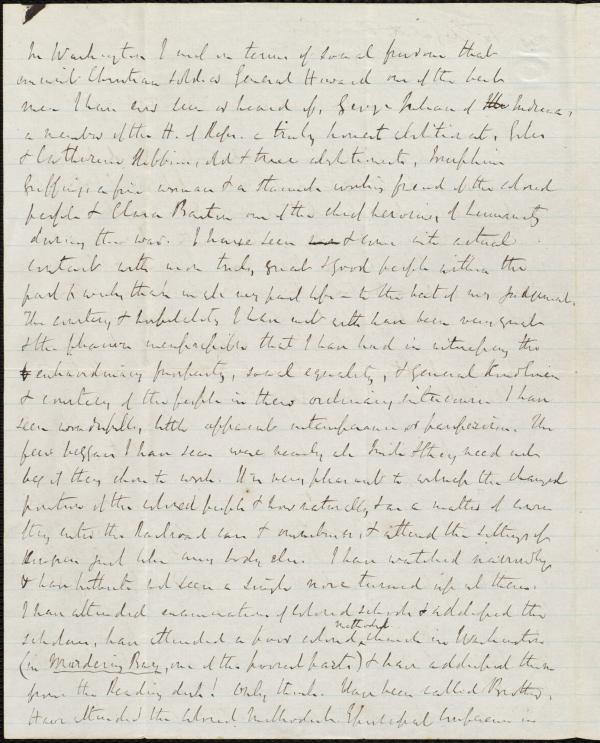 In Washington I met on terms of social freedom that
eminent Christian soldier General Howard one of the best
men I have ever seen or heard of, George Julian of the Indiana,
a member of the H. of Reps. a truly honest abolitionist, Giles
& Catherine Stebbins, old & true abolitionists, Josephine
Griffing a fine woman & a staunch working friend of the colored
people & Clara Barton one of the chief heroines of humanity
during the war. I have seen & come into actual
contact with more truly great & good people within the
past 6 weeks than in all my past life – to the best of my judgment.
The courtesy & hospitality I have met with have been very great
& the pleasure inexpressible that I have had in witnessing the
extraordinary prosperity, social equality, & general kindness
& courtesy of the people in their ordinary intercourse. I have
seen wonderfully little apparent intemperance or pauperism. The
few beggars I have seen were nearly all Irish & they need not
beg if they chose to work. It is very pleasant to witness the changed
position of the colored people & how naturally & as a matter of course
they enter the Railroad cars & omnibuses, & attend the sittings of
Congress just like any body else. I have watched narrowly
& have hitherto not seen a single nose turned up at them.
I have attended examinations of colored schools & addressed the
scholars, have attended a poor colored methodist church in Washington
(in Murdering Bay, one of the poorest parts) & have addressed them
from the Reading desk! Only think. Have been called Brother,
Have attended the Colored Methodist Episcopal Conference in